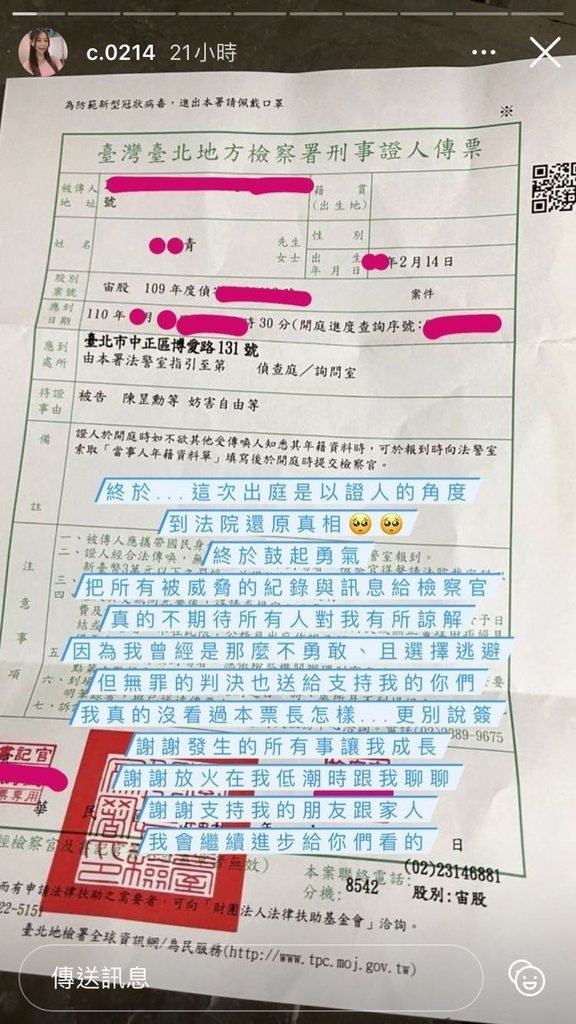 c.0214 21小時
為防範新型冠狀病毒，進出本署請佩戴口罩
※
臺灣臺北地方檢察署刑事證人傳票
被傳人
地址
號
籍貫
(出生地)
姓名
青
先生
女士
性別
出生
年月日
年2月14日
股別
案號
宙股 109年度偵
案件
應到
日期
110年
月
時30分(開庭進度查詢序號：
應到
處所
臺北市中正區博愛路131號
由本署法警室指引至第 偵查庭／詢問室
待證
事由
被告 陳昱勳等 妨害自由等
備
註
證人於開庭時如不欲其他受傳喚人知悉其年籍資料時，可於報到時向法警室
索取「當事人年籍資料單」填寫後於開庭時提交檢察官。
終於...這次出庭是以證人的角度
到法院還原真相🥺🥺
終於鼓起勇氣
把所有被威脅的紀錄與訊息給檢察官
真的不期待所有人對我有所諒解
因為我曾經是那麼不勇敢、且選擇逃避
但無罪的判決也送給支持我的你們
我真的沒看過本票長怎樣...更別說簽
謝謝發生的所有事讓我成長
謝謝放火在我低潮時跟我聊聊
謝謝支持我的朋友跟家人
我會繼續進步給你們看的
注意事項
一、被傳人應攜帶國民身
二、證人經合法傳喚，無
三
四
五
六、到場
七、訴訟
2389-9675
書記官
華民
日
本案聯絡電話：(02)23146881
分機：8542 股別：宙股
而有申請法律扶助之需要者，可向「財團法人法律扶助基金會」洽詢。
22-5151
臺北地檢署全球資訊網/為民服務(http://www.tpc.moj.gov.tw)
傳送訊息